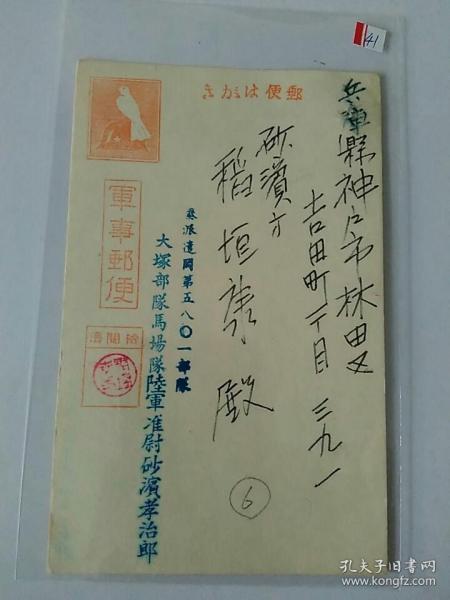 41
郵便はがき
軍事郵便
檢閲濟
兵庫縣神戸市林田区
吉田町一丁目三九一
砂濱方
稲垣康殿
派遣岡第五八〇一部隊
大塚部隊馬場隊陸軍准尉砂濱孝治郎
6
孔夫子旧书网
www.kongfz.com